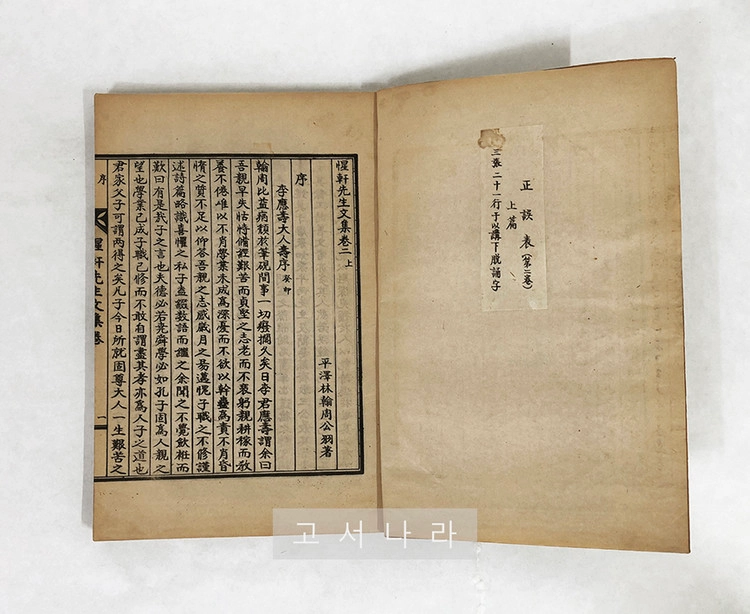 正誤表(第二卷)
上篇
三張二十一行于以講下脫誦字
惺軒先生文集卷二 上
平澤林翰周公羽著
序
李應壽大人壽序 癸卯
翰周比益病頹於筆硯間事一切廢擱久矣日李君應壽謂余曰
吾親早失怙恃備 艱苦而貞堅之志老而不衰躬親耕稼而敎
養不倦雖以不肖學業未成爲深憂而不欲以幹蠱爲責不肖昏
惰之質不足以仰答吾親之志感歲月之易邁愧子職之不修謹
述詩篇略識喜懼之私子盍綴數語而 之余聞之不覺歛衽而
歎曰有是哉子之言也夫德必若堯舜學必如孔子固爲人親之
望也學業已成子職已修而不敢自謂盡其孝亦爲人子之道也
君家父子可謂兩得之矣凡子今日所就固尊大人一生艱苦之
序 惺軒先生文集卷 一
고서나라